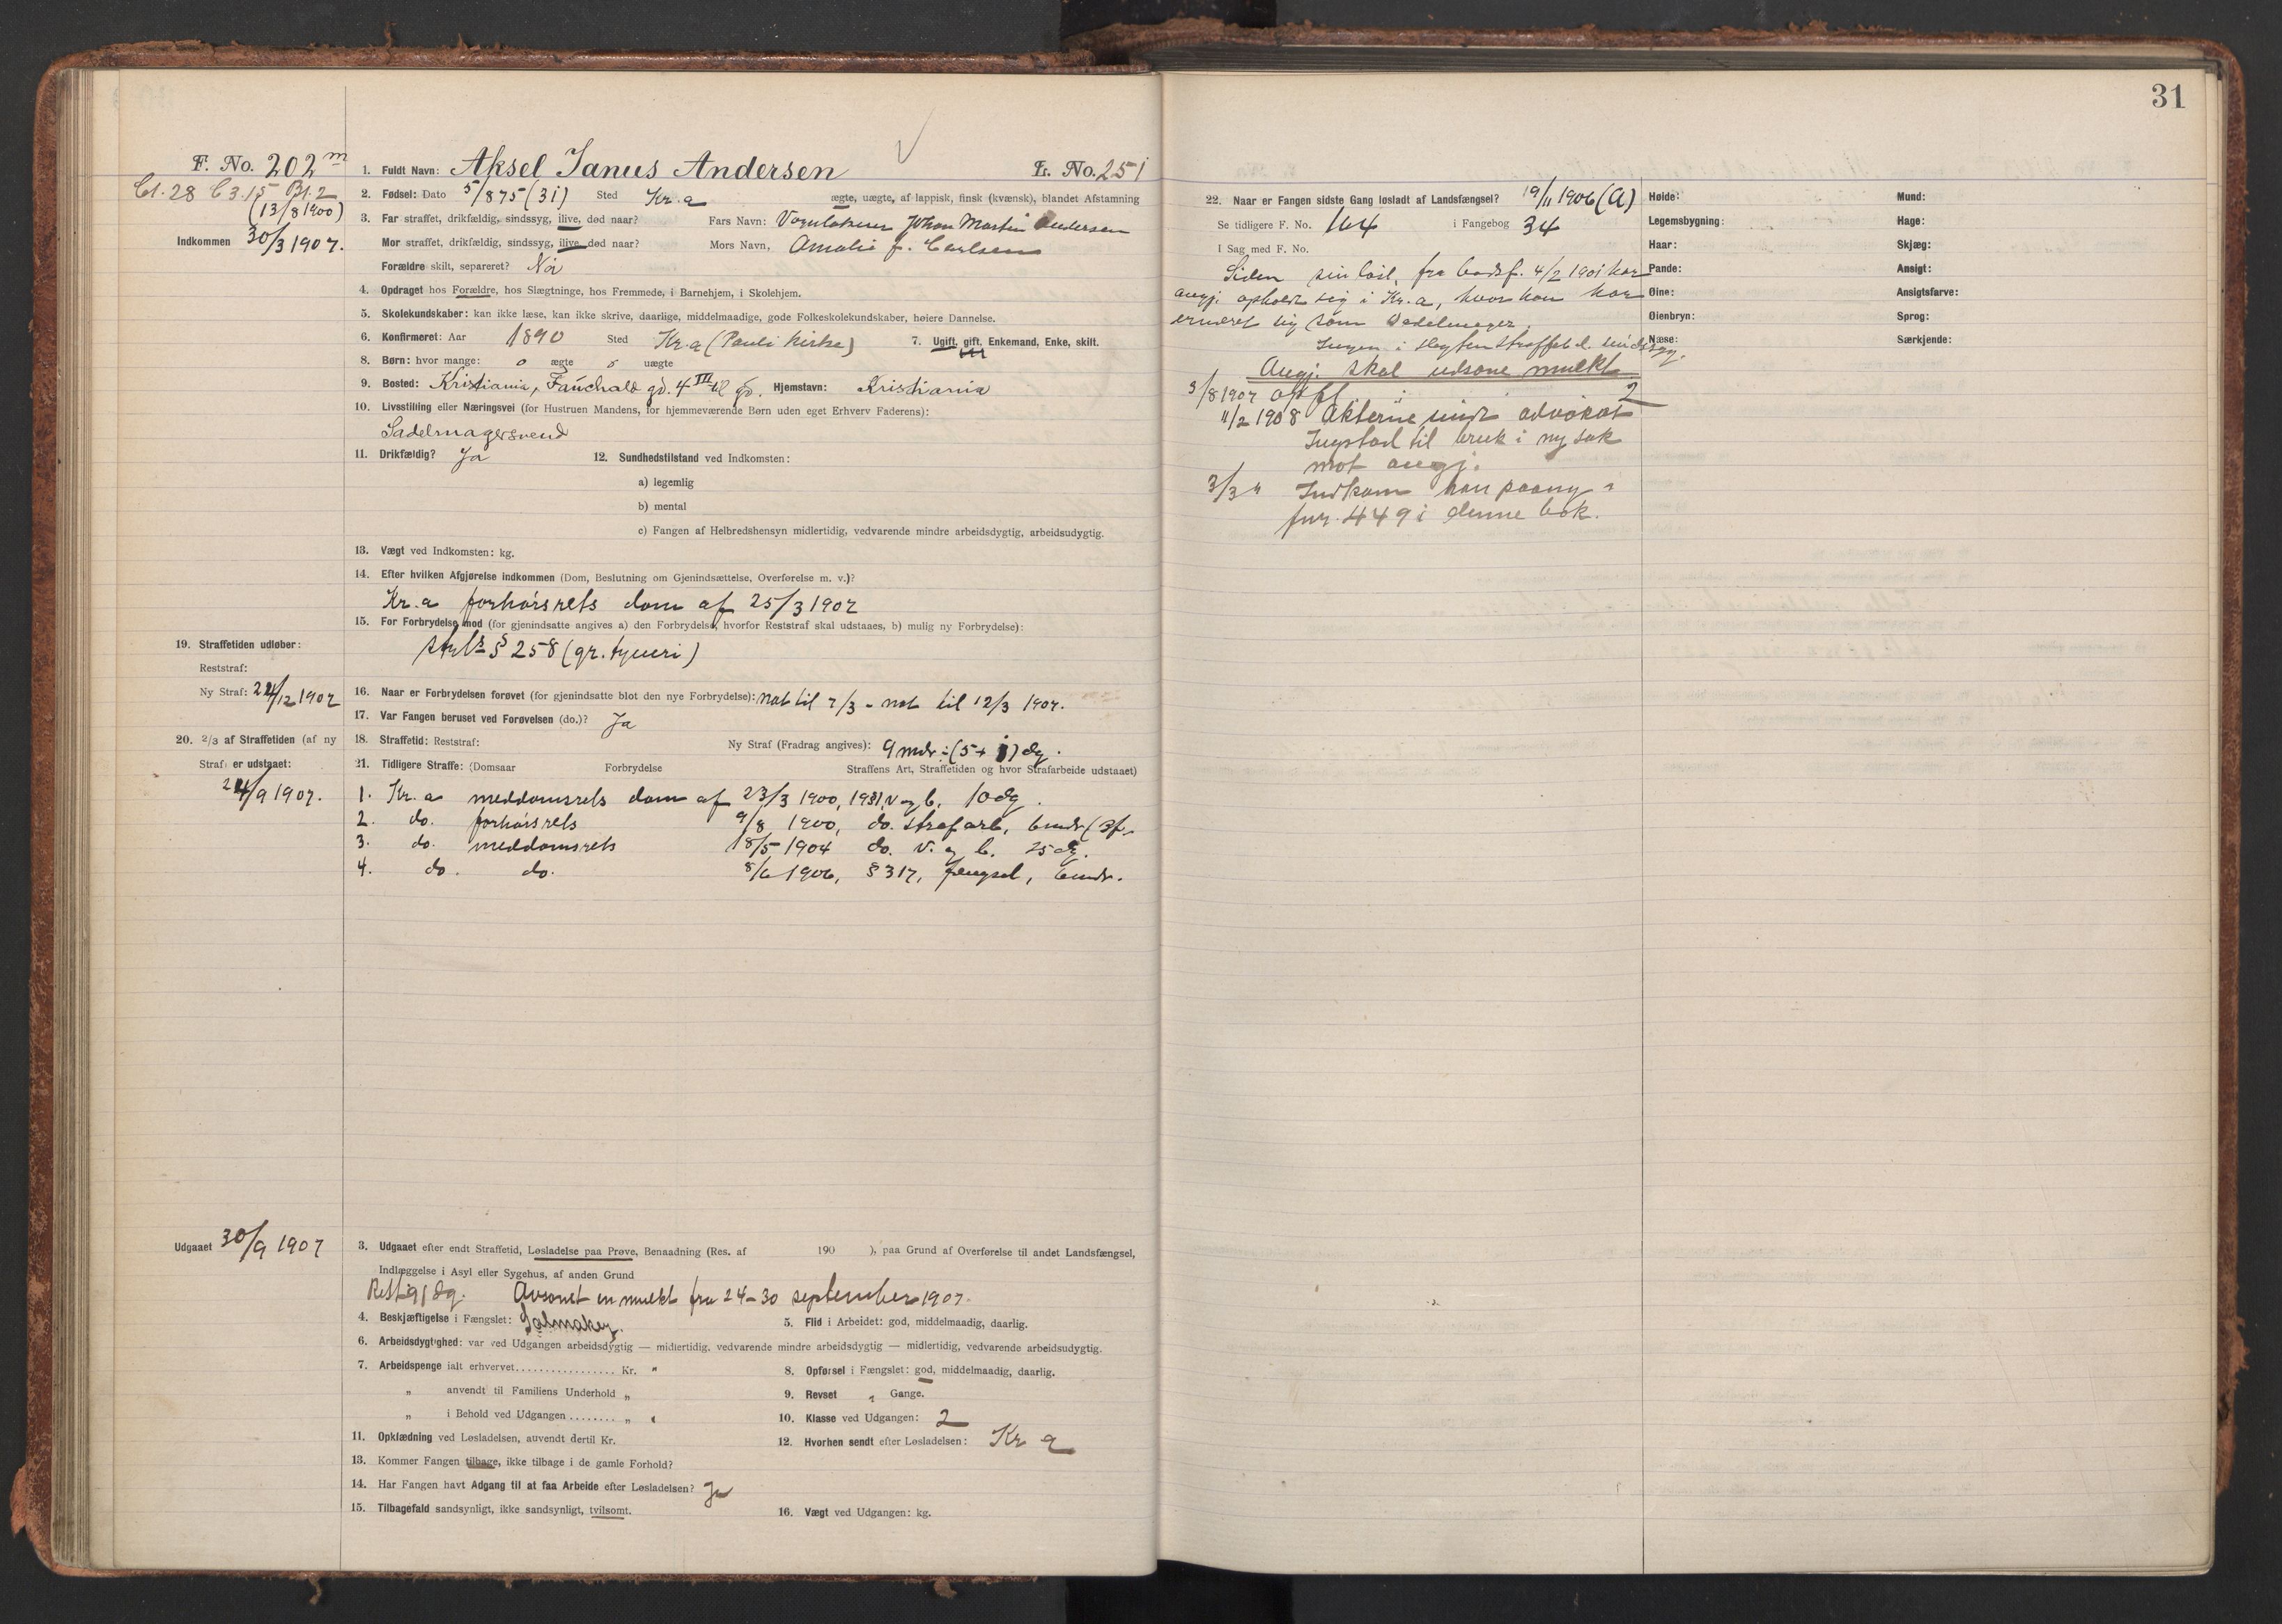 31
F. No. 202 m
1. Fuldt Navn: Aksel Janus Andersen L. No. 251
Bl. 2
(13/8 1900)
Indkommen 30/3 1907.
2. Fødsel: Dato 5/8 75 (31) Sted Kr.a ægte, uægte, af lappisk, finsk (kvænsk), blandet Afstamning
3. Far straffet, drikfældig, sindssyg, ilive, død naar? Fars Navn: Johan Martin Andersen
Mor straffet, drikfældig, sindssyg, ilive, død naar? Mors Navn, Amalie f. Carlsen
Forældre skilt, separeret? Nei
4. Opdraget hos Forældre, hos Slægtninge, hos Fremmede, i Barnehjem, i Skolehjem.
5. Skolekundskaber: kan ikke læse, kan ikke skrive, daarlige, middelmaadige, gode Folkeskolekundskaber, høiere Dannelse.
6. Konfirmeret: Aar 1890 Sted Kr.a (Pauli Kirke) 7. Ugift, gift, Enkemand, Enke, skilt.
8. Børn: hvor mange: o ægte o uægte
9. Bosted: Kristiania, Fauchald gd. 4 III Hjemstavn: Kristiania
10. Livsstilling eller Næringsvei (for Hustruen Mandens, for hjemmeværende Børn uden eget Erhverv Faderens):
Sadelmagersvend
11. Drikfældig? Ja 12. Sundhedstilstand ved Indkomsten:
a) legemlig
b) mental
c) Fangen af Helbredshensyn midlertidig, vedvarende mindre arbeidsdygtig, arbeidsudygtig.
13. Vægt ved Indkomsten: kg.
14. Efter hvilken Afgjørelse indkommen (Dom, Beslutning om Gjenindsættelse, Overførelse m. v.)?
Kr.a forhørsrets dom af 25/3 1907
15. For Forbrydelse mod (for gjenindsatte angives a) den Forbrydelse, hvorfor Reststraf skal udstaaes, b) mulig ny Forbrydelse):
§ 258 (gr. tyveri)
19. Straffetiden udløber:
Reststraf:
Ny Straf: 24/12 1907
16. Naar er Forbrydelsen forøvet (for gjenindsatte blot den nye Forbrydelse): nat til 7/3 - nat til 12/3 1907.
17. Var Fangen beruset ved Forøvelsen (do.)? Ja
20. 2/3 af Straffetiden (af ny
Straf) er udstaaet:
24/9 1907.
18. Straffetid: Reststraf: Ny Straf (Fradrag angives): 9 mdr ÷ (5+1) dg.
21. Tidligere Straffe: (Domsaar Forbrydelse Straffens Art, Straffetiden og hvor Strafarbeide udstaaet)
1. Kr.a meddomsrets dom af 23/3 1900, v og b. 10 dg.
2. do. forhørsrets 9/8 1900, do. strafarb, 6 mdr
3. do. meddomsrets 18/5 1904 do. v. og b. 25 dg.
4. do. do. 8/6 1906, § 317, fængsel, 6 mdr.
Udgaaet 30/9 1907
3. Udgaaet efter endt Straffetid, Løsladelse paa Prøve, Benaadning (Res. af 190 ), paa Grund af Overførelse til andet Landsfængsel,
Indlæggelse i Asyl eller Sygehus, af anden Grund
Rest: 91 dg. Avsonet en mulkt fra 24-30 september 1907.
4. Beskjæftigelse i Fængslet: Salmaker. 5. Flid i Arbeidet: god, middelmaadig, daarlig.
6. Arbeidsdygtighed: var ved Udgangen arbeidsdygtig — midlertidig, vedvarende mindre arbeidsdygtig — midlertidig, vedvarende arbeidsudygtig.
7. Arbeidspenge ialt erhvervet................. Kr. " 8. Opførsel i Fængslet: god, middelmaadig, daarlig.
" anvendt til Familiens Underhold „ 9. Revset " Gange.
" i Behold ved Udgangen ........ „ 10. Klasse ved Udgangen: 2
11. Opklædning ved Løsladelsen, anvendt dertil Kr. 12. Hvorhen sendt efter Løsladelsen: Kr a
13. Kommer Fangen tilbage, ikke tilbage i de gamle Forhold?
14. Har Fangen havt Adgang til at faa Arbeide efter Løsladelsen? Ja
15. Tilbagefald sandsynligt, ikke sandsynligt, tvilsomt. 16. Vægt ved Udgangen: kg.
22. Naar er Fangen sidste Gang løsladt af Landsfængsel? 19/11 1906 (A)
Se tidligere F. No. 164 i Fangebog 34
I Sag med F. No.
Siden sin løsl. fra bodsf. 4/2 1901 har
angj. opholdt sig i Kr.a, hvor han har
ernæret sig som sadelmager.
Ingen i slegten straffet el. sindssyg.
Angj. skal udsone mulkt
3/8 1907 opfl 2
11/2 1908 Akterne advokat
til bruk i ny sak
mot angj.
3/3 " Indkom han paany
fnr. 449 i denne bok.
Høide: Mund:
Legemsbygning: Hage:
Haar: Skjæg:
Pande: Ansigt:
Øine: Ansigtsfarve:
Øienbryn: Sprog:
Næse: Særkjende: